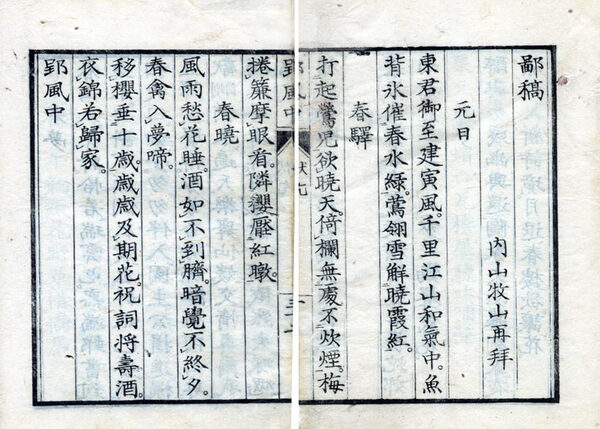 鄙稿
內山牧山再拜
元日
東君御至建寅風。千里江山和氣中。魚
背氷催春水綠。鶯翎雪解曉霞紅。
春驛
打起鶯児欲曉天。倚欄無處不炊煙。梅
郢風中
捲簾摩眼看。隣櫻壓紅暾。
春曉
風雨愁花睡。酒如不到臍。暗覺不終夕。
春禽入夢啼。
移櫻垂十歲。歲歲及期花。祝詞将壽酒。
衣錦若歸家。
郢風中